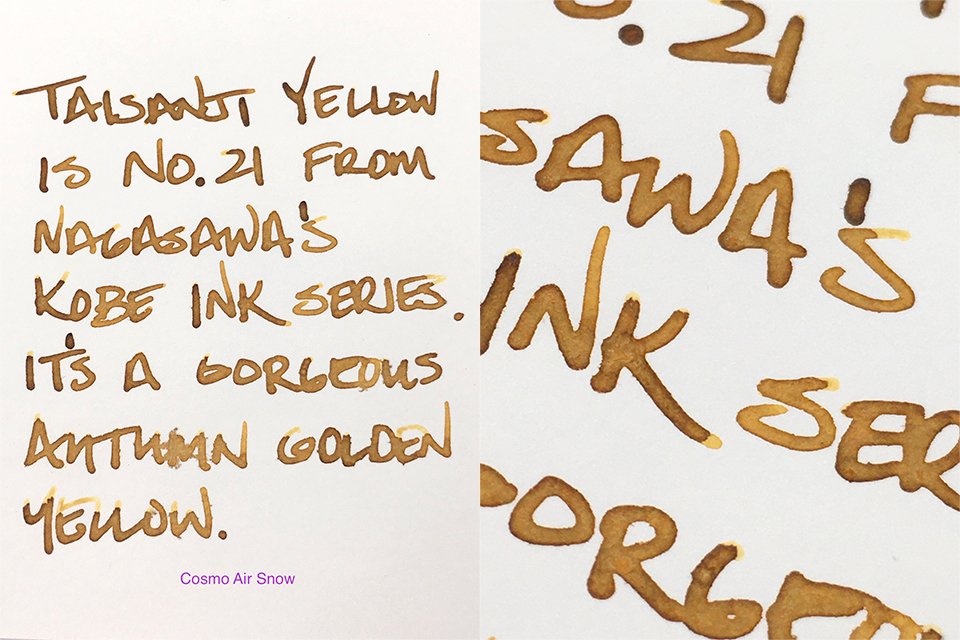 TAISANJI YELLOW
IS NO.21 FROM
NAGASAWA'S
KOBE INK SERIES.
IT'S A GORGEOUS
AUTUMN GOLDEN
YELLOW.
Cosmo Air Snow
O.21 F
SAWA'S
INK SER
ORGE